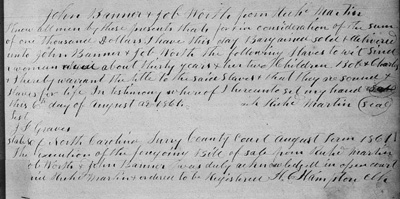 John Banner & Job Worth from Richd Martin
Know all men by these presents that for in consideration of the sum
of one Thousand Dollars I have this day Bargained sold & delivered
unto John Banner & Job Worth the following slaves to wit one
woman about thirty years & her two Children Bob & Charly
& I hereby warrant the title to the said slaves & that they are sound &
slaves for life In testimony whereof I hereunto set my hand
this 6th day of August AD 1861. Richd Martin (seal)
Test
J F Graves
State of North Carolina, Surry County Court August Term 1861
The execution of the foregoing Bill of sale from Richd Martin
Job Worth & John Banner was duly acknowledged in open court
Richd Martin & ordered to be Registered H C Hampton Clk